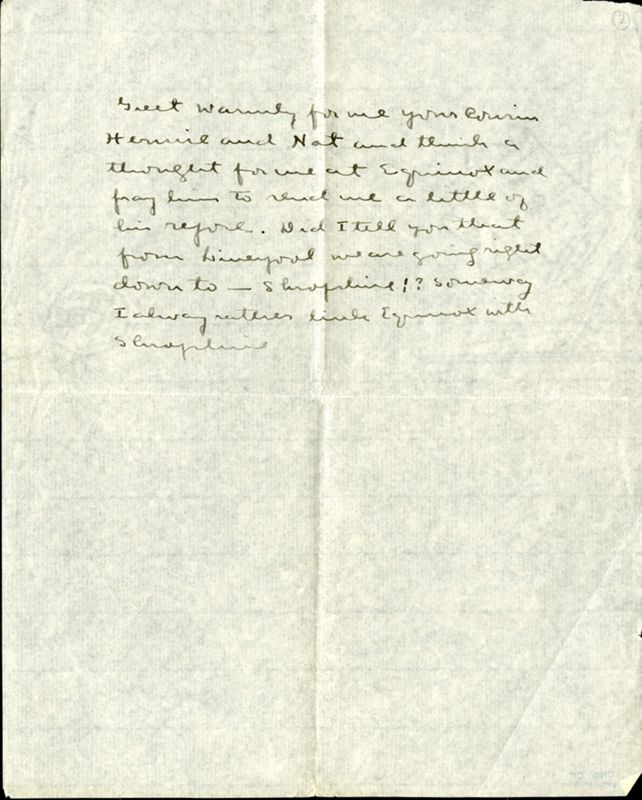 2
Greet warmly for me your Cousin
Hennie and Nat and think a
thought for me at Equinox and
pray him to send me a little of
his repose. Did I tell you that
from Liverpool we are going right
down to — Shropshire!? Someway
I alway rather link Equinox with
Shropshire